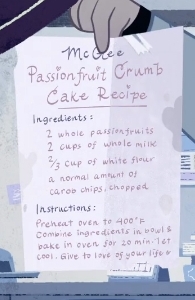 McGee
Passionfruit Crumb
Cake Recipe
Ingredients:
2 whole passionfruits
2 cups of whole milk
2/3 cup of white flour
a normal amount of
carob chips, chopped
Instructions:
Preheat oven to 400°F
Combine ingredients in bowl &
bake in oven for 20 min. Let
cool. Give to love of your life &